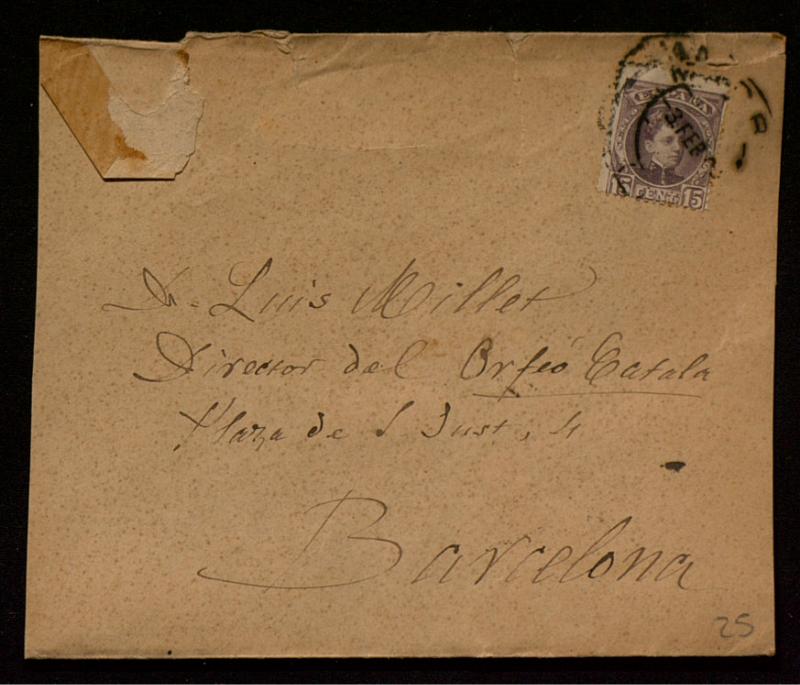 ESPAÑA
3 FEB
15 CENT 15
D. Luis Millet
Director del Orfeó Catala
Plaza de S Just, 4
Barcelona
25